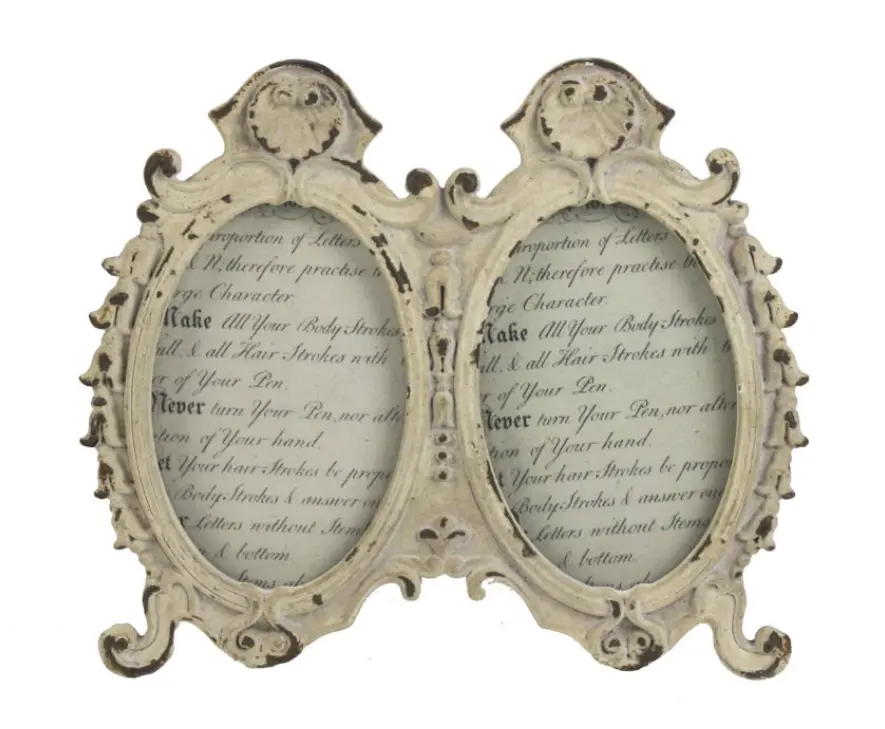 roportion of Letters
& N; therefore practise
rge Character.
Make All Your Body Strokes
ull, & all Hair Strokes with
er of Your Pen.
Never turn Your Pen, nor alte
tion of Your hand.
et Your hair Strokes be propo
Body Strokes & answer one
Letters without Stems
& bottom
Stems
roportion of Letters
N; therefore practise th
rge Character.
Make All Your Body Strokes
ull, & all Hair Strokes with t
r of Your Pen.
Never turn Your Pen, nor alter
tion of Your hand.
t Your hair Strokes be propo
Body Strokes & answer one
Letters without Stems
& bottom